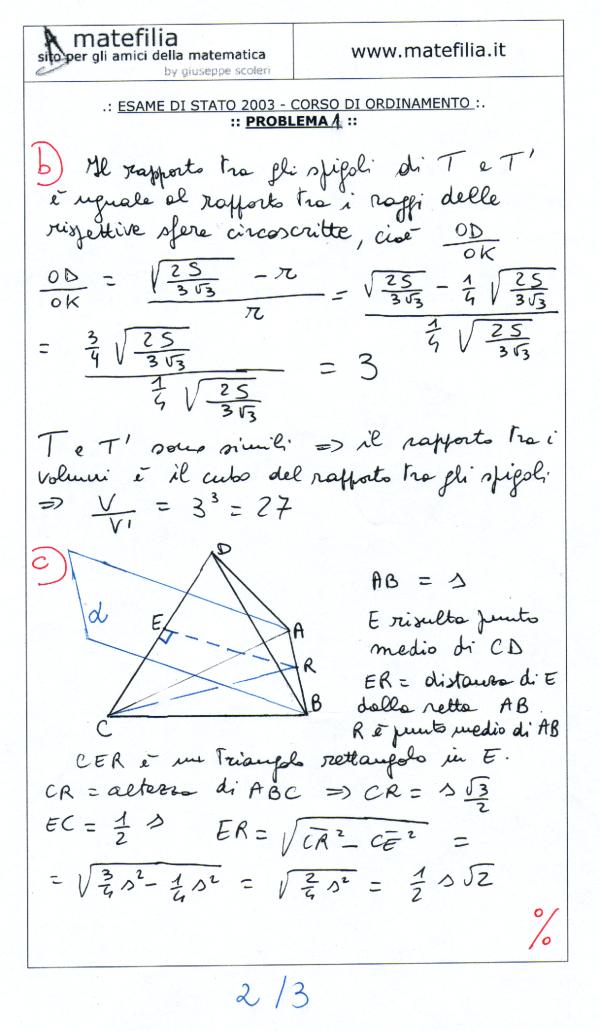 matefilia
sito per gli amici della matematica
by giuseppe scoleri
www.matefilia.it
.: ESAME DI STATO 2003 - CORSO DI ORDINAMENTO :.
:: PROBLEMA 1 ::
b) Il rapporto tra gli spigoli di T e T'
è uguale al rapporto tra i raggi delle
rispettive sfere circoscritte, cioè OD/OK
OD/OK = (√(2S/(3√3)) - r)/r = (√(2S/(3√3)) - 1/4 √(2S/(3√3)))/(1/4 √(2S/(3√3)))
= (3/4 √(2S/(3√3)))/(1/4 √(2S/(3√3))) = 3
T e T' sono simili => il rapporto tra i
volumi è il cubo del rapporto tra gli spigoli
=> V/V' = 3³ = 27
c)
D
α
E
A
R
B
C
AB = s
E risulta punto
medio di CD
ER = distanza di E
dalla retta AB.
R è punto medio di AB
CER è un triangolo rettangolo in E.
CR = altezza di ABC => CR = s √3/2
EC = 1/2 s ER = √(CR² - CE²) =
= √(3/4 s² - 1/4 s²) = √(2/4 s²) = 1/2 s √2
%
2/3